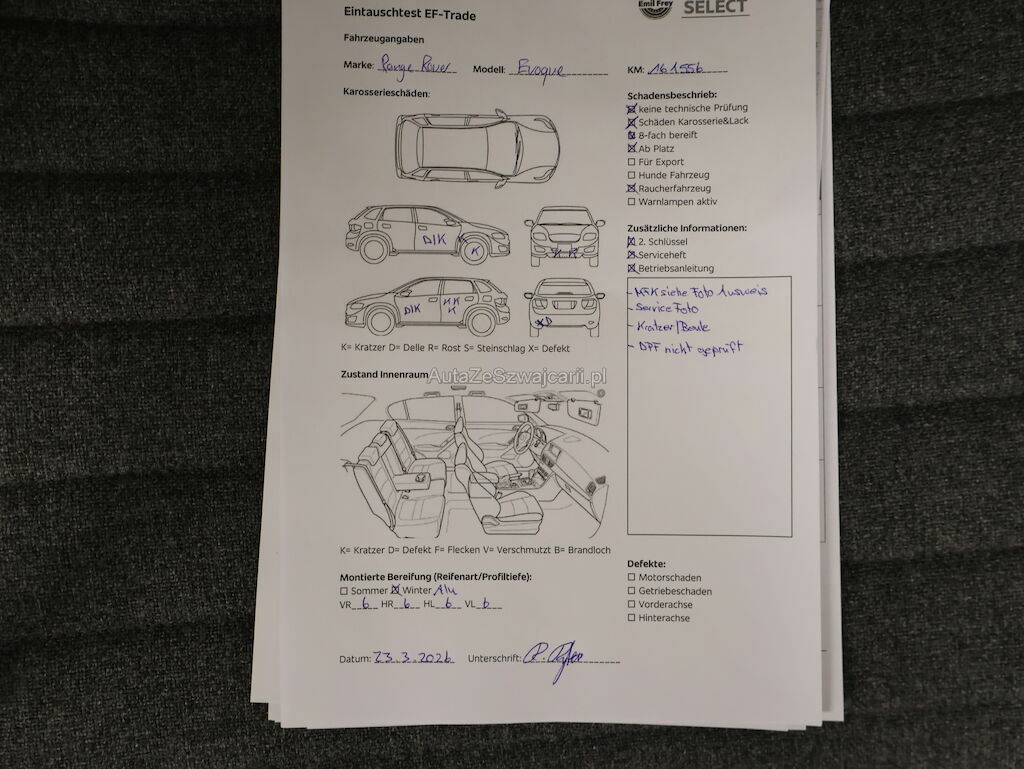 Eintauschtest EF-Trade
Emil Frey SELECT
Fahrzeugangaben
Marke: Range Rover Modell: Evoque KM: 161556
Karosserieschäden:
D/K
K
K K
D/K
K K
K
X D
K= Kratzer D= Delle R= Rost S= Steinschlag X= Defekt
Schadensbeschrieb:
keine technische Prüfung
Schäden Karosserie&Lack
8-fach bereift
Ab Platz
Für Export
Hunde Fahrzeug
Raucherfahrzeug
Warnlampen aktiv
Zusätzliche Informationen:
2. Schlüssel
Serviceheft
Betriebsanleitung
- MFK siehe Foto Ausweis
- Service Foto
- Kratzer/Beule
- DPF nicht geprüft
Zustand Innenraum
AutaZeSzwajcarii.pl
K= Kratzer D= Defekt F= Flecken V= Verschmutzt B= Brandloch
Montierte Bereifung (Reifenart/Profiltiefe):
Sommer Winter Alu
VR 6 HR 6 HL 6 VL 6
Defekte:
Motorschaden
Getriebeschaden
Vorderachse
Hinterachse
Datum: 23.3.2026 Unterschrift: